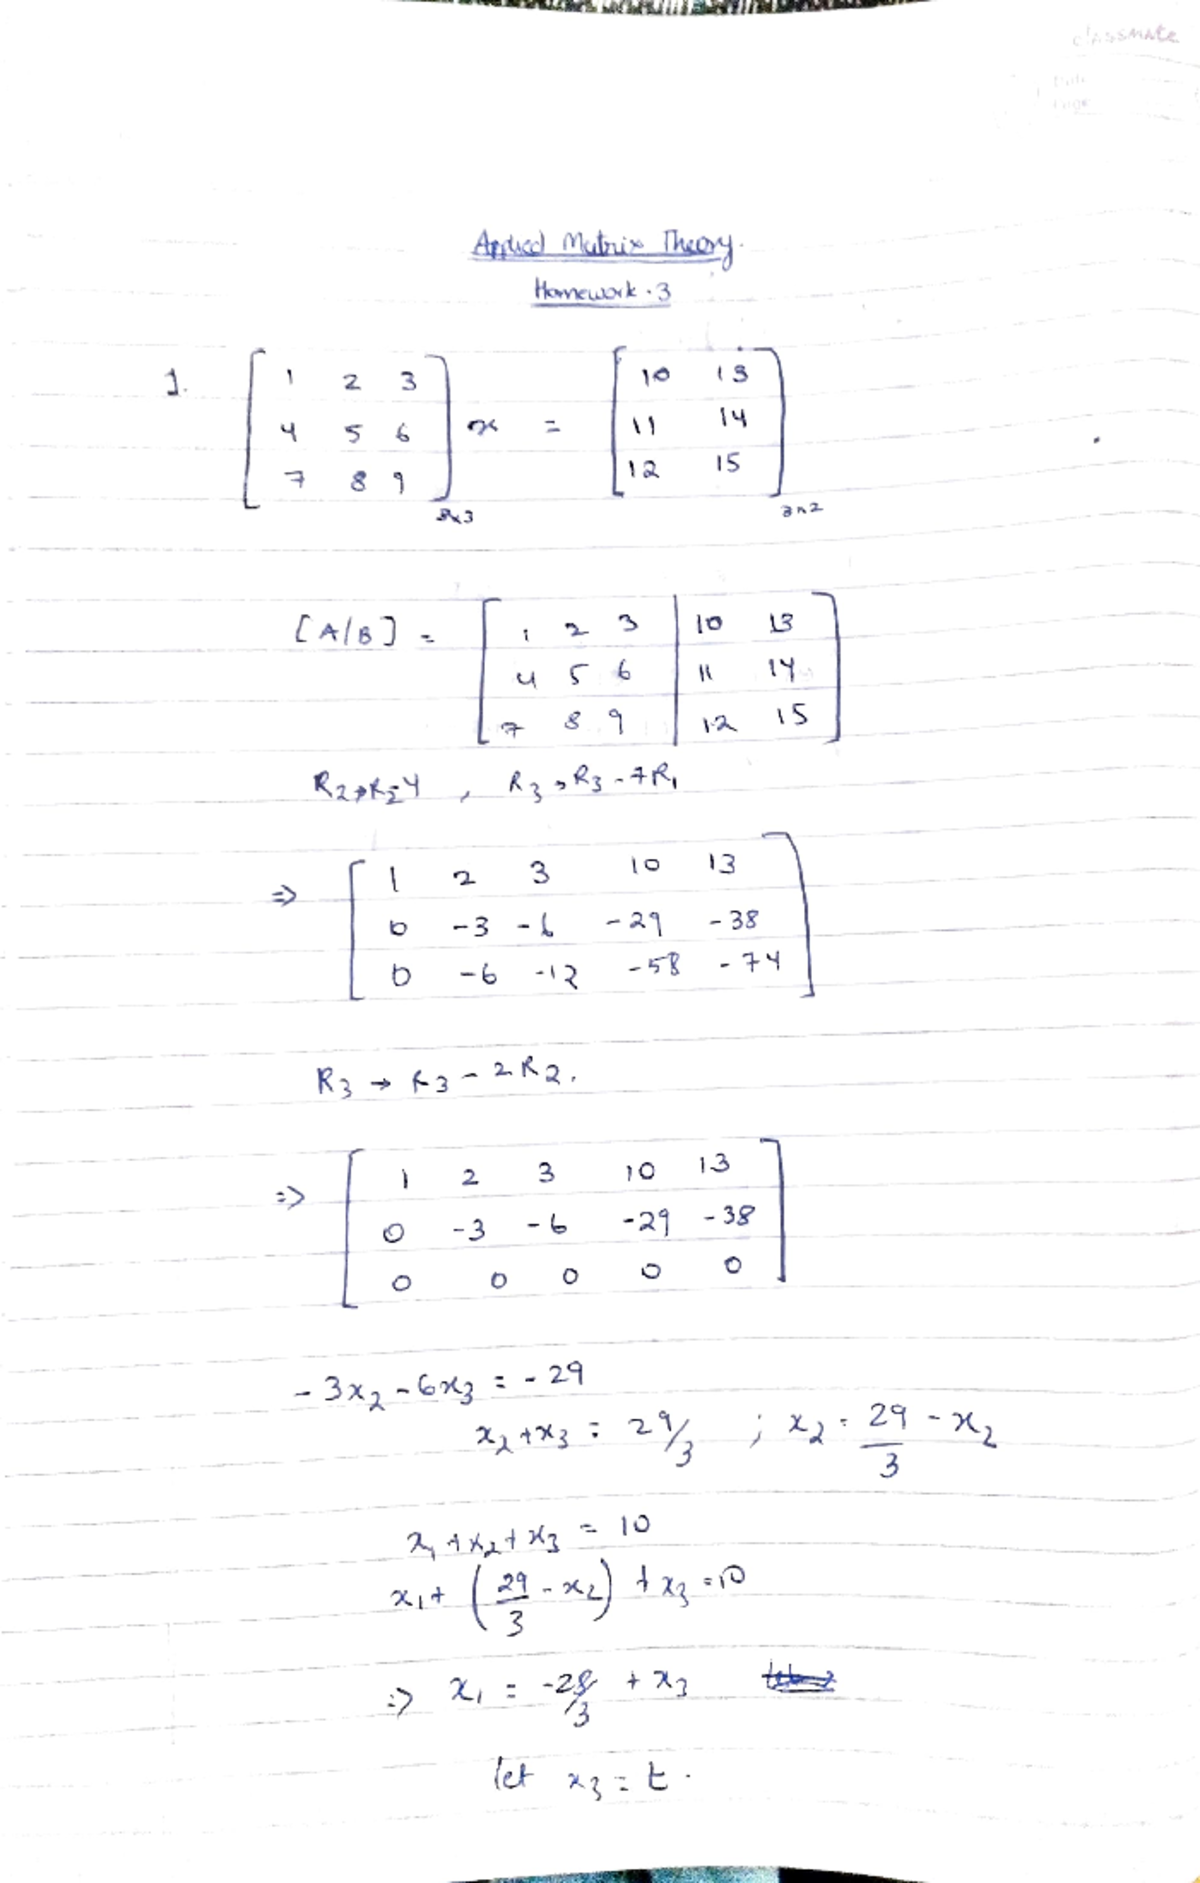 classmate
Date
Page
Applied Matrix Theory.
Homework - 3
1. [ 1 2 3 ] [ 10 13 ]
4 5 6 x = 11 14
7 8 9 12 15
3x3 3x2
[A/B] = [ 1 2 3 | 10 13 ]
4 5 6 | 11 14
7 8 9 | 12 15
R2→R2-4 , R3→R3-7R1
⇒ [ 1 2 3 10 13 ]
0 -3 -6 -29 -38
0 -6 -12 -58 -74
R3 → R3 - 2R2.
⇒ [ 1 2 3 10 13 ]
0 -3 -6 -29 -38
0 0 0 0 0
-3x2 - 6x3 = -29
x2+x3 = 29/3 ; x2 = 29/3 - x2
x1+x2+x3 = 10
x1+ (29/3 - x2) + x3 = 10
⇒ x1 = -28/3 + x3
let x3 = t.